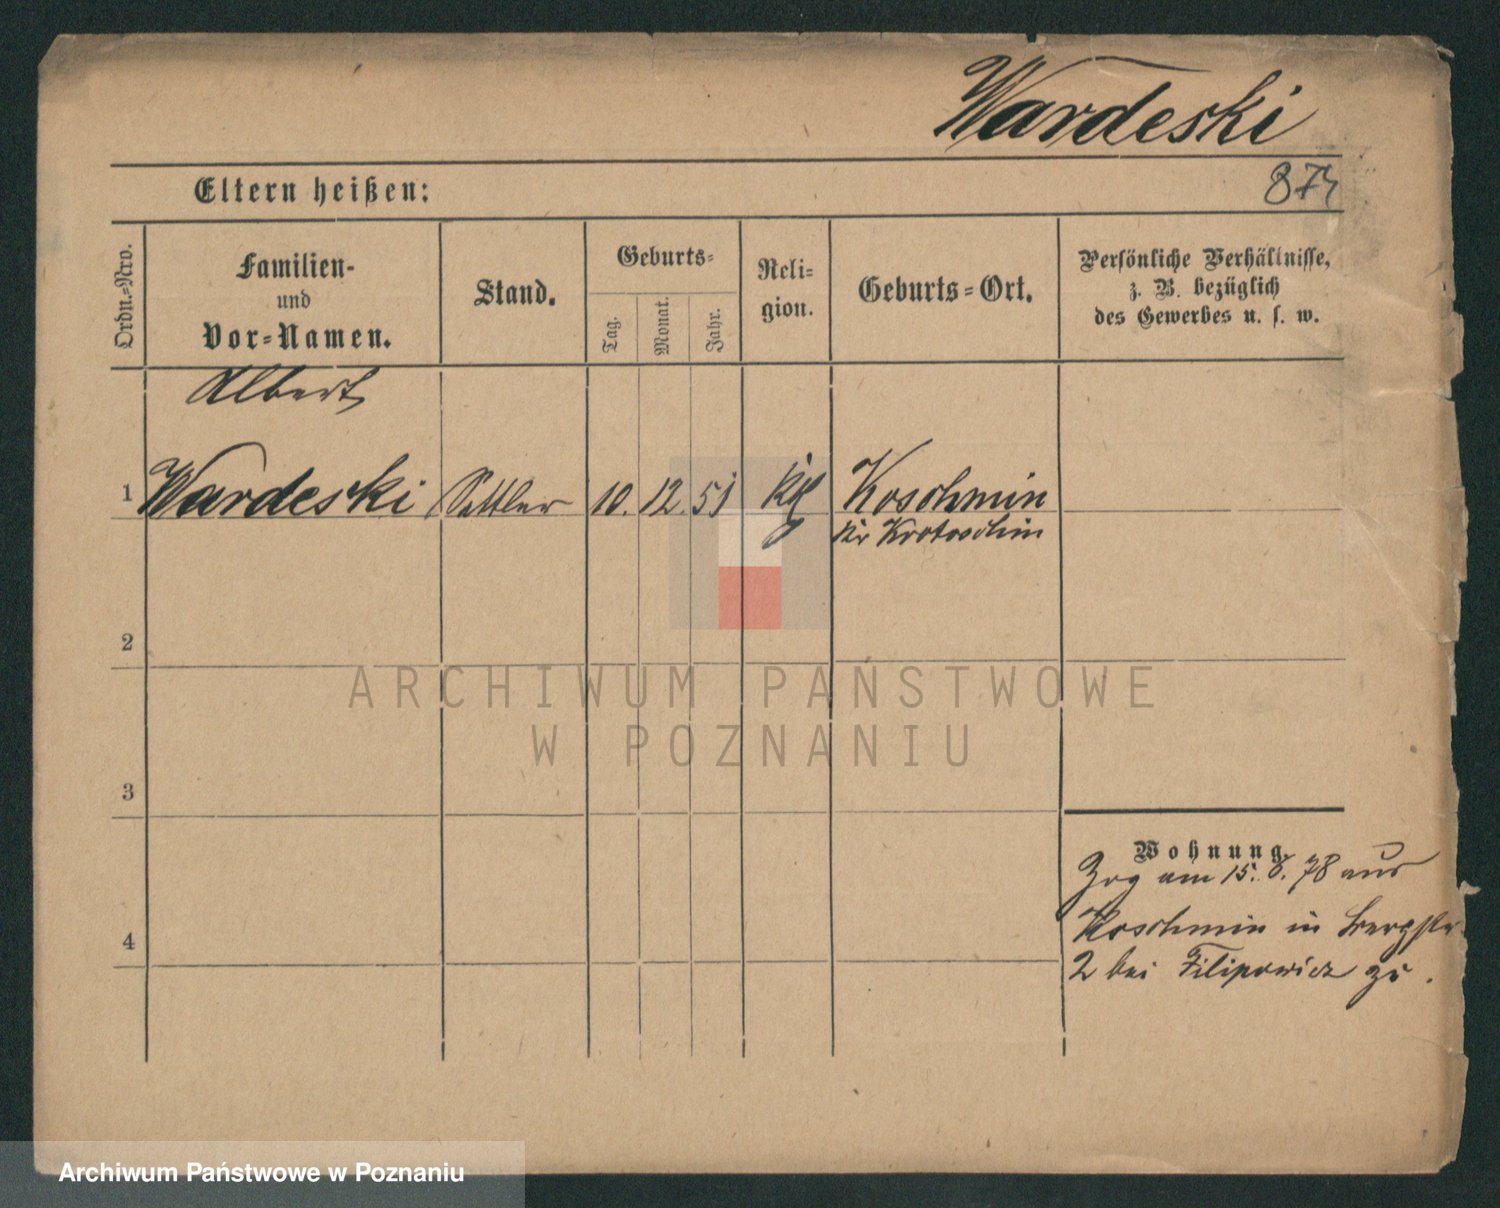 Wardeski
874
Eltern heißen:
Ordn.-Nro.
Familien-
und
Vor-Namen.
Stand.
Geburts-
Tag.
Monat.
Jahr.
Reli-
gion.
Geburts-Ort.
Persönliche Verhältnisse,
z. B. bezüglich
des Gewerbes u. s. w.
Albert
1 Wardeski Sattler 10. 12. 51 Koschmin
Kr Krotoschin
2
3
4
Wohnung.
Zog am 15. 8. 78 aus
Koschmin in Bergstr
2 bei Filipowicz zu.
ARCHIWUM PAŃSTWOWE
W POZNANIU
Archiwum Państwowe w Poznaniu